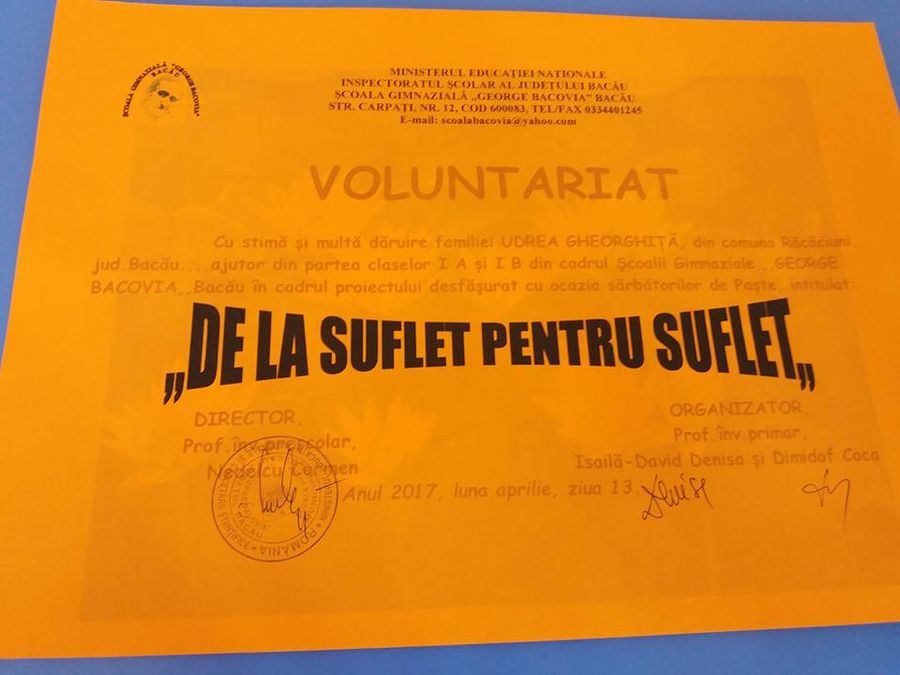 ȘCOALA GIMNAZIALĂ "GEORGE BACOVIA"
BACĂU
MINISTERUL EDUCAȚIEI NATIONALE
INSPECTORATUL ȘCOLAR AL JUDEȚULUI BACĂU
ȘCOALA GIMNAZIALĂ „GEORGE BACOVIA" BACĂU
STR. CARPAȚI, NR. 12, COD 600083, TEL/FAX 0334401245
E-mail: scoalabacovia@yahoo.com
VOLUNTARIAT
Cu stimă și multă dăruire familiei UDREA GHEORGHIȚĂ, din comuna Răcăciuni,
jud.Bacău....ajutor din partea claselor I A și I B din cadrul Școalii Gimnaziale ,,GEORGE
BACOVIA,,Bacău în cadrul proiectului desfășurat cu ocazia sărbătorilor de Paște, intitulat:
„DE LA SUFLET PENTRU SUFLET„
DIRECTOR,
Prof.înv.preșcolar,
Nedelcu Carmen
ORGANIZATOR,
Prof.înv.primar,
Isailă-David Denisa și Dimidof Coca
Anul 2017, luna aprilie, ziua 13.
Denisa
ROMÂNIA